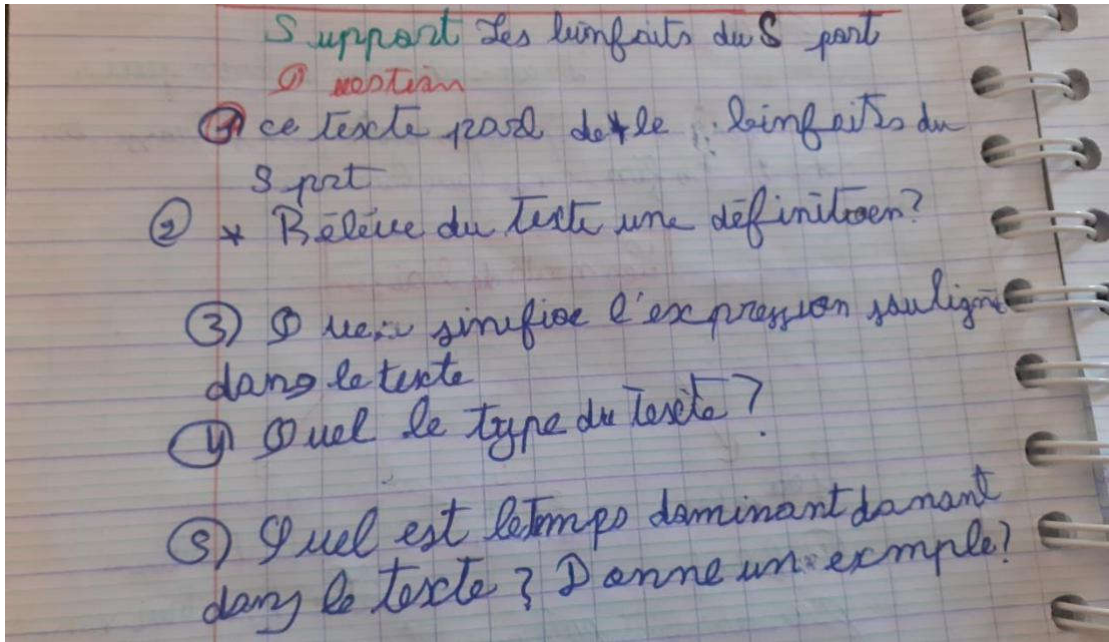 Support Les binfaits du Sport
Question
1 ce texte parl de le : binfaits du
Sport
2 * Rélève du texte une définitioen?
3) Que sinifioe l'expression souligné
dans le texte
4 Quel le type du texte?
5) Quel est letemps dominant danant
dans le texte? Donne un exmple?